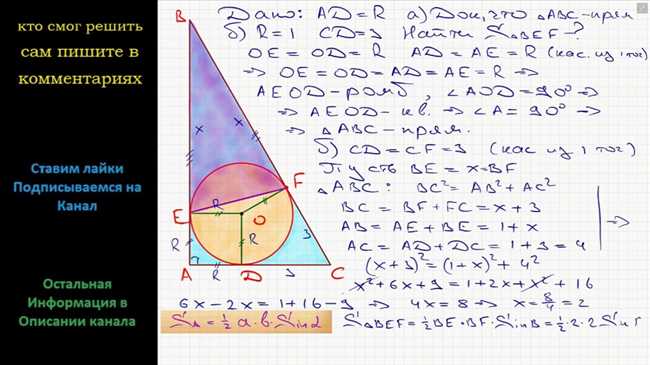 кто смог решить
сам пишите в
комментариях
Ставим лайки
Подписываемся на
Канал
Остальная
Информация в
Описании канала
Дано: AD = R а) Док, что △ABC - прям
б) R = 1 CD = 3 Найти S△BEF - ?
OE = OD = R AD = AE = R (кас. из 1 тог)
⇒ OE = OD = AD = AE = R ⇒
AEOD - ромб, ∠AOD = 90° ⇒
⇒ AEOD - кв. ⇒ ∠A = 90° ⇒
⇒ △ABC - прям.
б) CD = CF = 3 (кас из 1 тог)
Пусть BE = x = BF
△ABC: BC² = AB² + AC²
BC = BF + FC = x + 3
AB = AE + BE = 1 + x ⇒
AC = AD + DC = 1 + 3 = 4
(x + 3)² = (1 + x)² + 4²
x² + 6x + 9 = 1 + 2x + x² + 16
6x - 2x = 1 + 16 - 9 ⇒ 4x = 8 ⇒ x = 8/4 = 2
S△ = ½ a · b · Sin α S△BEF = ½ BE · BF · Sin B = ½ · 2 · 2 Sin
B
x x
F
E R O
R R 3
A D 3 C